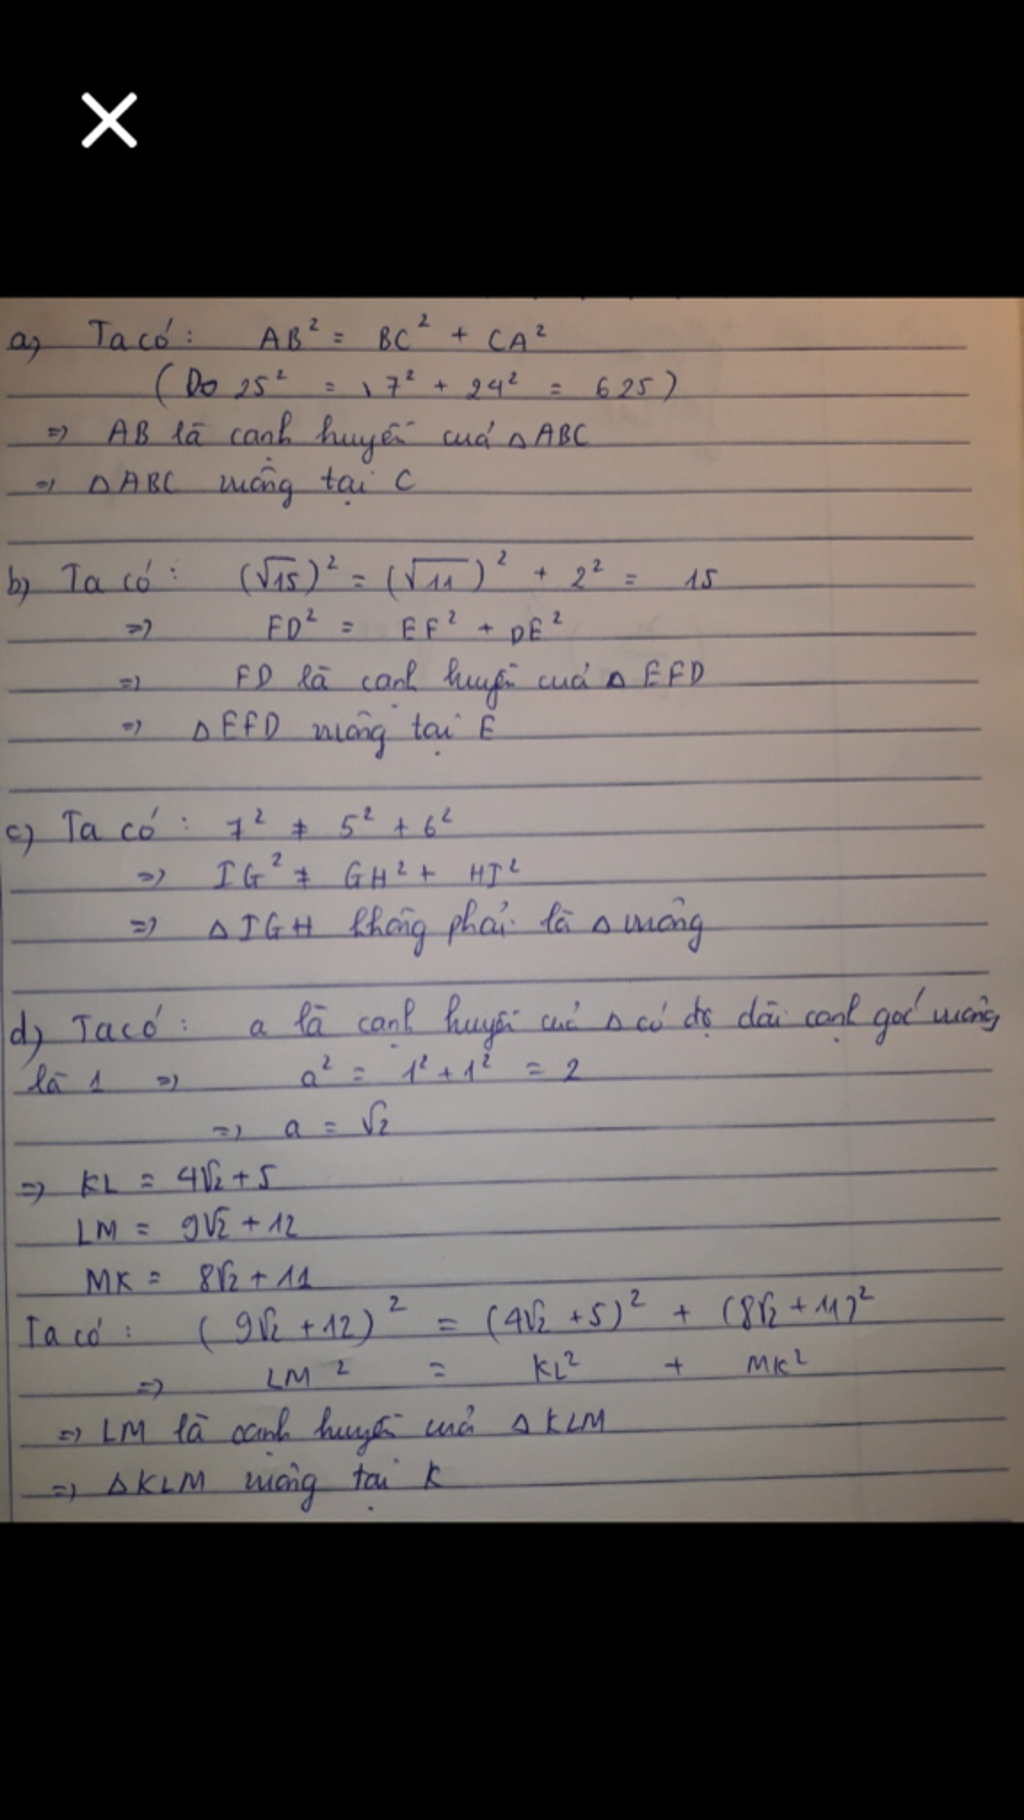 a) Ta có: AB² = BC² + CA²
(Do 25² = 7² + 24² = 625)
=> AB là cạnh huyền của △ABC
=> △ABC vuông tại C
b) Ta có: (√15)² = (√11)² + 2² = 15
=> FD² = EF² + DE²
=> FD là cạnh huyền của △EFD
=> △EFD vuông tại E
c) Ta có: 7² ≠ 5² + 6²
=> IG² ≠ GH² + HI²
=> △IGH không phải là △ vuông
d) Ta có: a là cạnh huyền của △ có độ dài cạnh góc vuông
là 1 => a² = 1² + 1² = 2
=> a = √2
=> KL = 4√2 + 5
LM = 9√2 + 12
MK = 8√2 + 11
Ta có: (9√2 + 12)² = (4√2 + 5)² + (8√2 + 11)²
=> LM² = KL² + MK²
=> LM là cạnh huyền của △KLM
=> △KLM vuông tại K